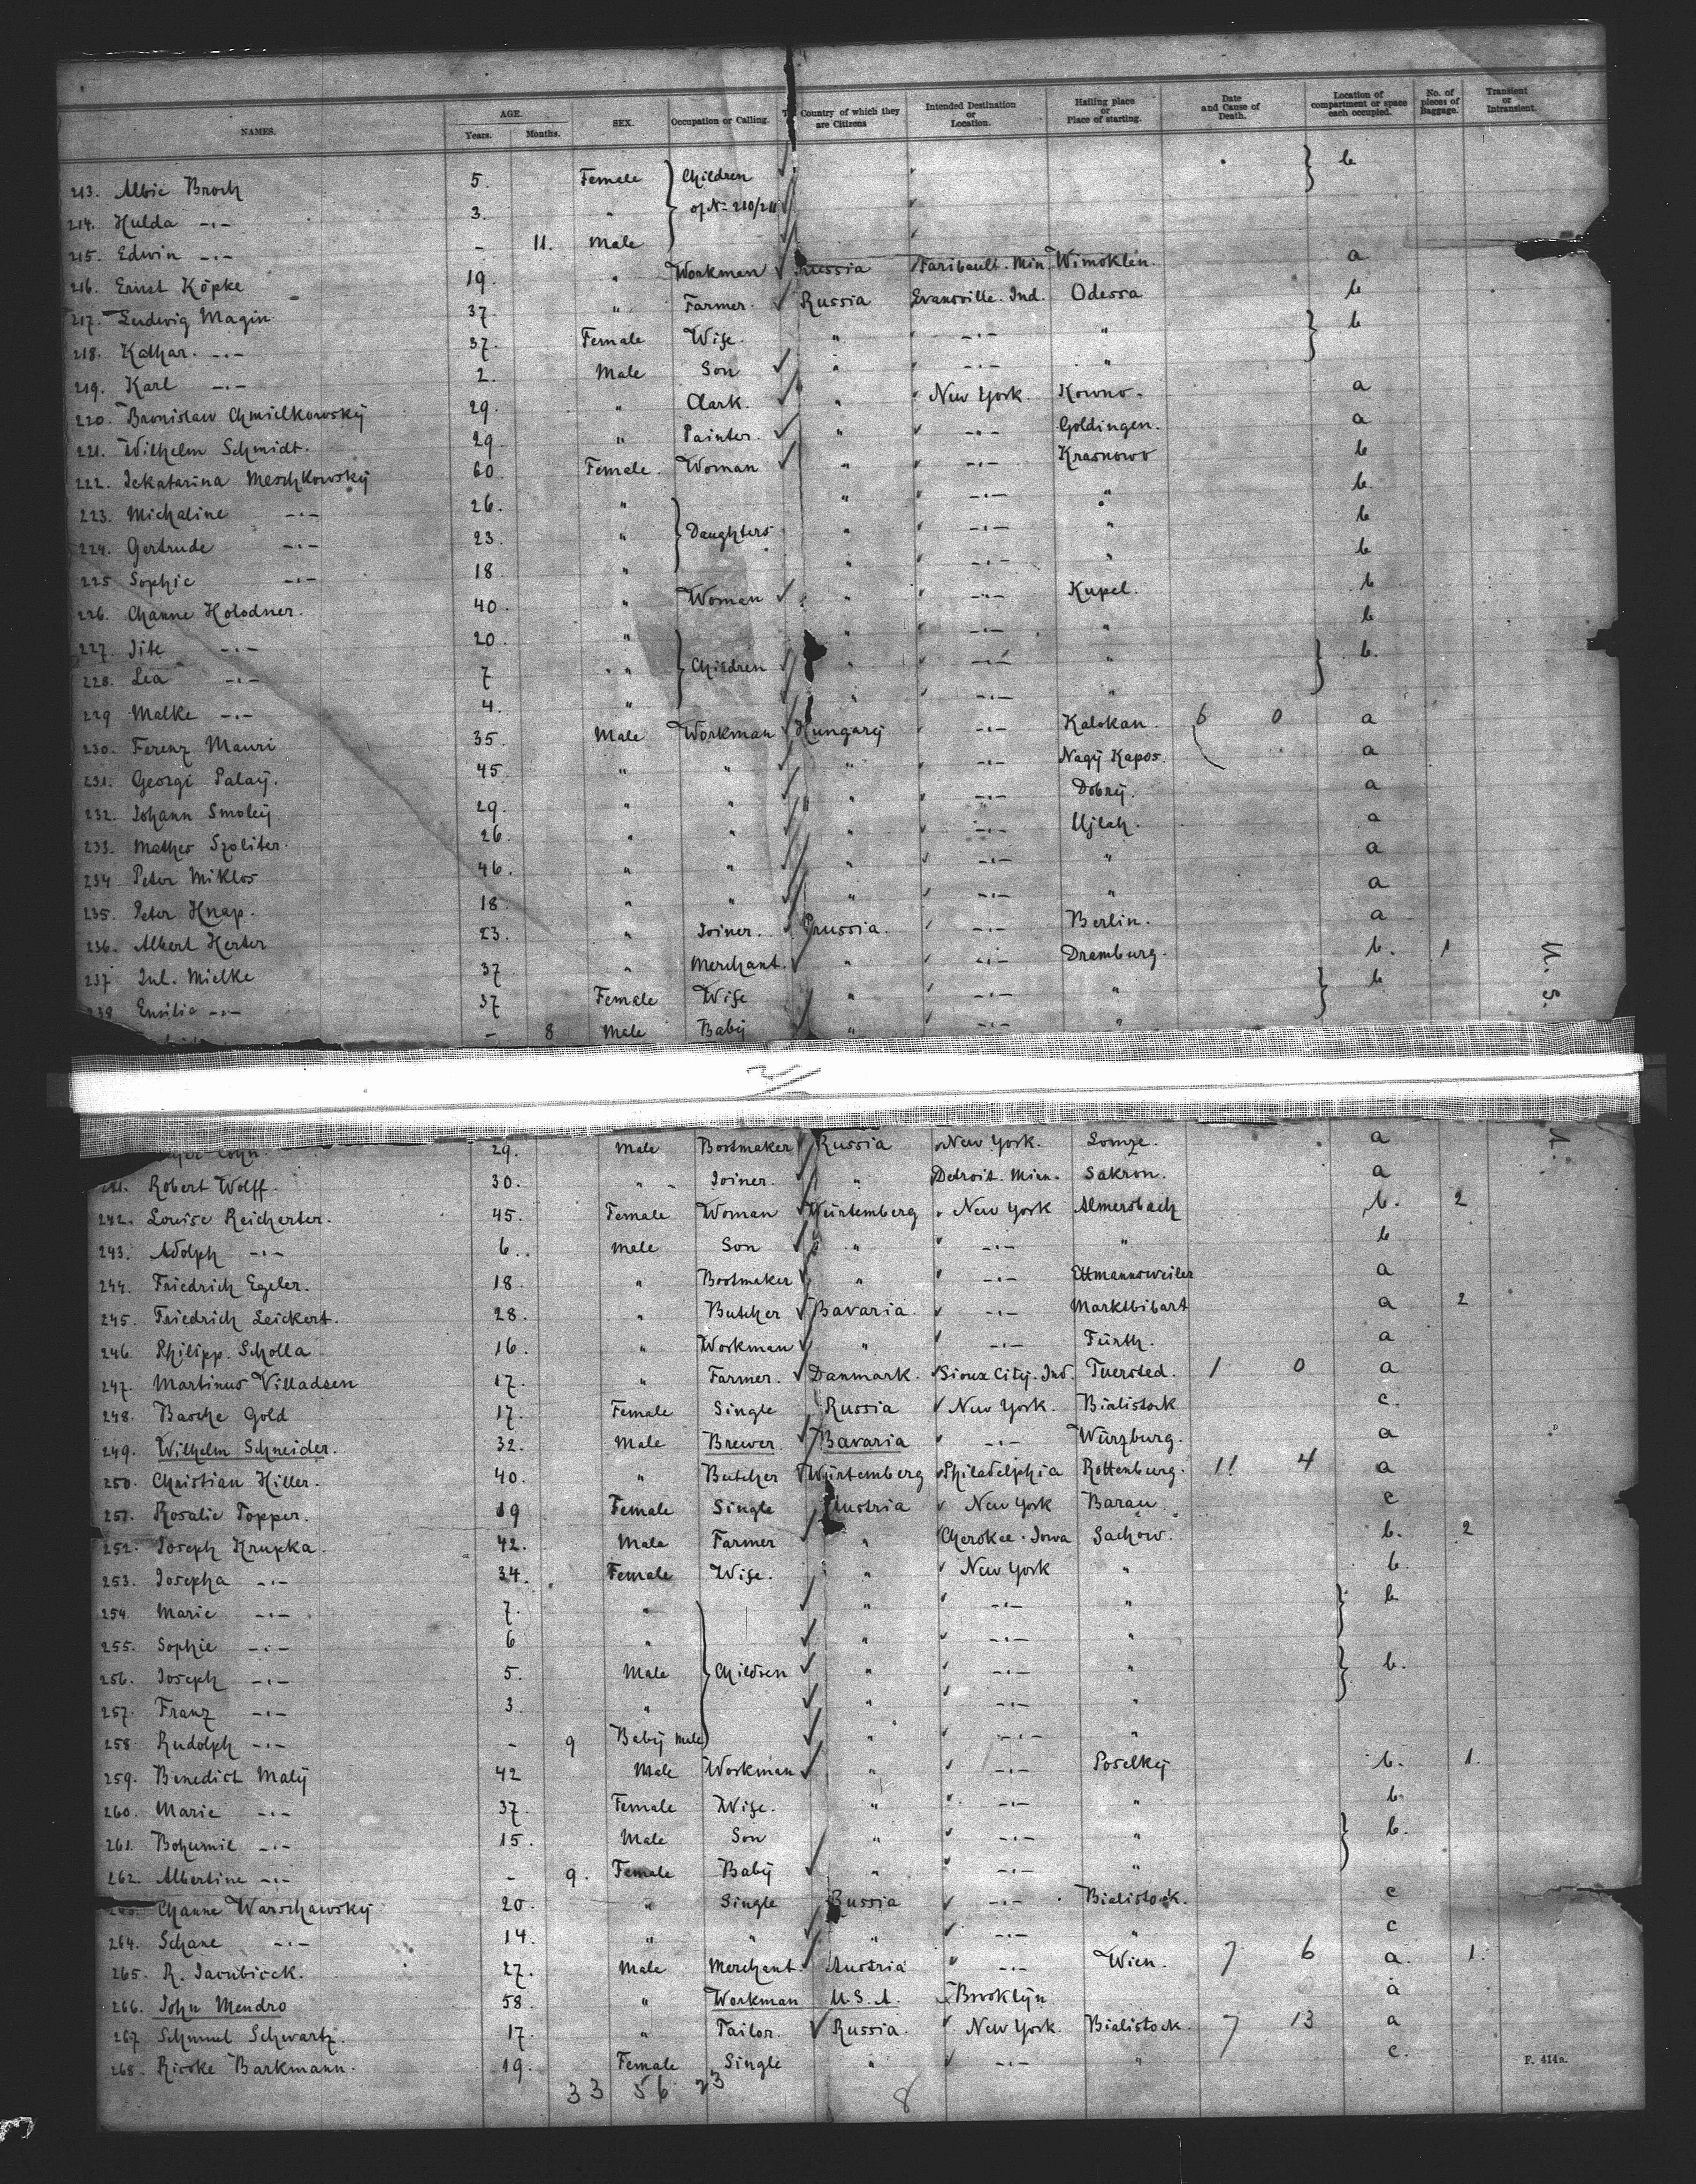 NAMES. AGE. Years. Months. SEX. Occupation or Calling. Country of which they are Citizens Intended Destination or Location. Hailing place or Place of starting. Date and Cause of Death. Location of compartment or space each occupied. No. of pieces of Baggage. Transient or Intransient.
213. Albie Broch 5. Female Children b
214. Hulda -"- 3. " of No 210/211
215. Edwin -"- - 11. Male
216. Ernst Köpke 19. " Workman Prussia Faribault. Min. Wimoklen. a
217. Ludwig Magin 37. " Farmer. Russia Evansville. Ind. Odessa b
218. Kathar. -"- 37. Female Wife. " -"- " b
219. Karl -"- 2. Male Son " -"- "
220. Bronislaw Chmielkowsky 29. " Clark. " New York. Kowno. a
221. Wilhelm Schmidt. 29. " Painter. " -"- Goldingen. a
222. Jekatarina Meschkowsky 60. Female. Woman " -"- Krasnowo b
223. Michaline -"- 26. " Daughters " -"- " b.
224. Gertrude -"- 23. " " -"- " b
225 Sophie -"- 18. " " -"- " b
226. Channe Holodner. 40. " Woman " -"- Kupel. b
227. Jite -"- 20. " Children " -"- " b
228. Lea -"- 7 " " -"- " b.
229 Malke -"- 4. " " -"- "
230. Ferenz Mauri 35. Male Workman Hungary -"- Kalokan. 6 0 a
231. Georgi Palay. 45. " " " -"- Nagy Kapos. a
232. Johann Smoley. 29. " " " -"- Dobry. a
233. Mathes Szoliter. 26. " " " -"- Ujlak. a
234 Peter Miklos 46. " " " -"- " a
235. Peter Knap. 18. " " " -"- " a
236. Albert Herter 23. " Joiner. Prussia. -"- Berlin. a
237 Jul. Mielke 37 " Merchant. " -"- Dramburg. b. 1
238 Emilie -"- 37 Female Wife " -"- " b
- 8 Male Baby " -"- "
U. S. A.
Cohn. 29. Male Bootmaker Russia New York. Lomze. a
241. Robert Wolff. 30. " Joiner. " Detroit. Minn. Sakron. a
242. Louise Reicherter. 45. Female Woman Würtemberg New York Almersbach b. 2
243. Adolph -"- 6. Male Son " -"- " b
244. Friedrich Egeler. 18. " Bootmaker " -"- Ettmannsweiler a
245. Friedrich Leickert. 28. " Butcher Bavaria. -"- Marktbibart a 2
246. Philipp. Scholla 16. " Workman " -"- Fürth. a
247. Martinus Villadsen 17. " Farmer. Danmark. Sioux City. Ind. Tuersted. 1 0 a
248. Basche Gold 17. Female Single Russia New York. Bialistock c.
249. Wilhelm Schneider. 32. Male Brewer Bavaria -"- Würzburg. a
250. Christian Hiller. 40. " Butcher Würtemberg Philadelphia Rottenburg. 11 4 a
251. Rosalie Topper. 19 Female Single Austria New York Barau c
252. Joseph Krupka. 42. Male Farmer " Cherokee. Iowa Sachow. b. 2
253. Josepha -"- 34. Female Wife. " New York " b.
254. Marie -"- 7. " Children " -"- " b
255. Sophie -"- 6 " " -"- "
256. Joseph -"- 5. Male " -"- " b.
257. Franz -"- 3. " " -"- "
258. Rudolph -"- - 9 Baby male " -"- "
259. Benedict Maly 42 Male Workman " -"- Poselky b. 1.
260. Marie -"- 37. Female Wife. " -"- " b.
261. Bohumil -"- 15. Male Son " -"- " b.
262. Albertine -"- - 9. Female Baby " -"- "
Channe Warschawsky 20. " Single Russia -"- Bialistock. c
264. Schane -"- 14. " " " -"- " c
265. R. Jacubicek. 27. Male Merchant. Austria -"- Wien. 7 6 a. 1.
266. John Mendro 58. " Workman U. S. A. Brooklyn a
267 Schmul Schwartz. 17. " Tailor. Russia. New York. Bialistock. 7 13 a
268. Rioske Barkmann. 19. Female Single " -"- " c.
F. 414a.
33 56 23 8